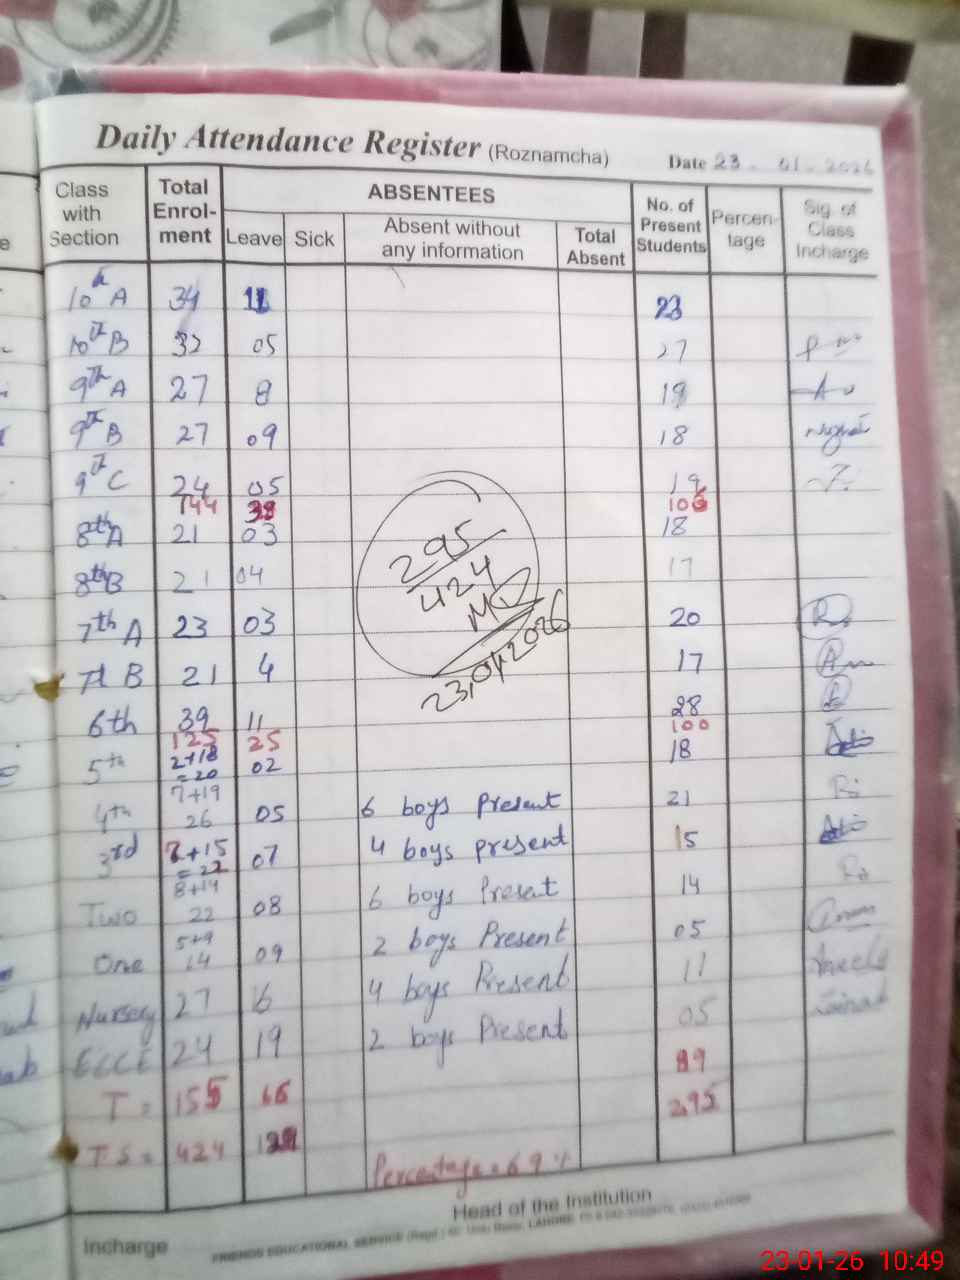 Daily Attendance Register (Roznamcha)
Date 23 - 01 - 2026
Class with Section Total Enrol-ment ABSENTEES No. of Present Students Percen-tage Sig. of Class Incharge
Leave Sick Absent without any information Total Absent
10th A 34 11 23
10th B 32 05 27
9th A 27 8 19
9th B 27 09 18
9th C 24 05 19
144 38 106
8th A 21 03 18
8th B 21 04 17
295
424
7th A 23 03 20
23,01,2026
7th B 21 4 17
6th 39 11 28
125 25 100
5th 2+18 = 20 02 18
4th 7+19 26 05 6 boys Present 21
3rd 7+15 = 22 07 4 boys present 15
Two 8+14 22 08 6 boys Present 14
One 5+9 14 09 2 boys Present 05
Nursery 27 16 4 boys Present 11
ECCE 24 19 2 boys Present 05
T = 155 66 89
T S = 424 129 295
Percentage = 69 %
Head of the Institution
Incharge
FRIENDS EDUCATIONAL SERVICE (Regd.)
23-01-26 10:49